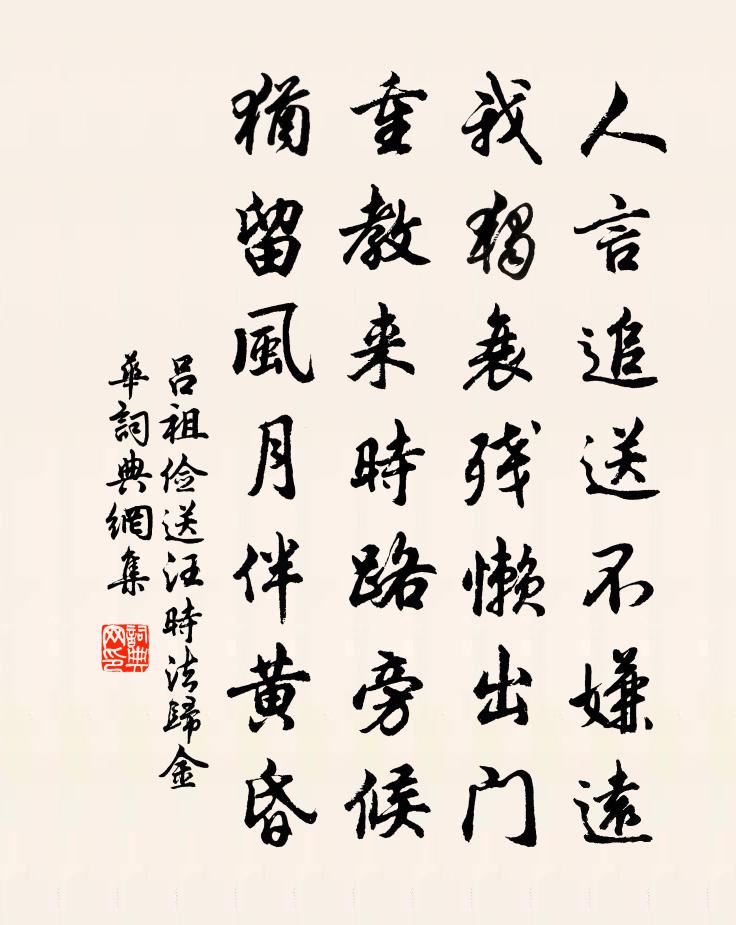 人言追送不嫌遠
我獨衰残懶出門
重教来時路旁候
猶留風月伴黄昏
吕祖俭送汪時法歸金
華詞典網集
詞典網印